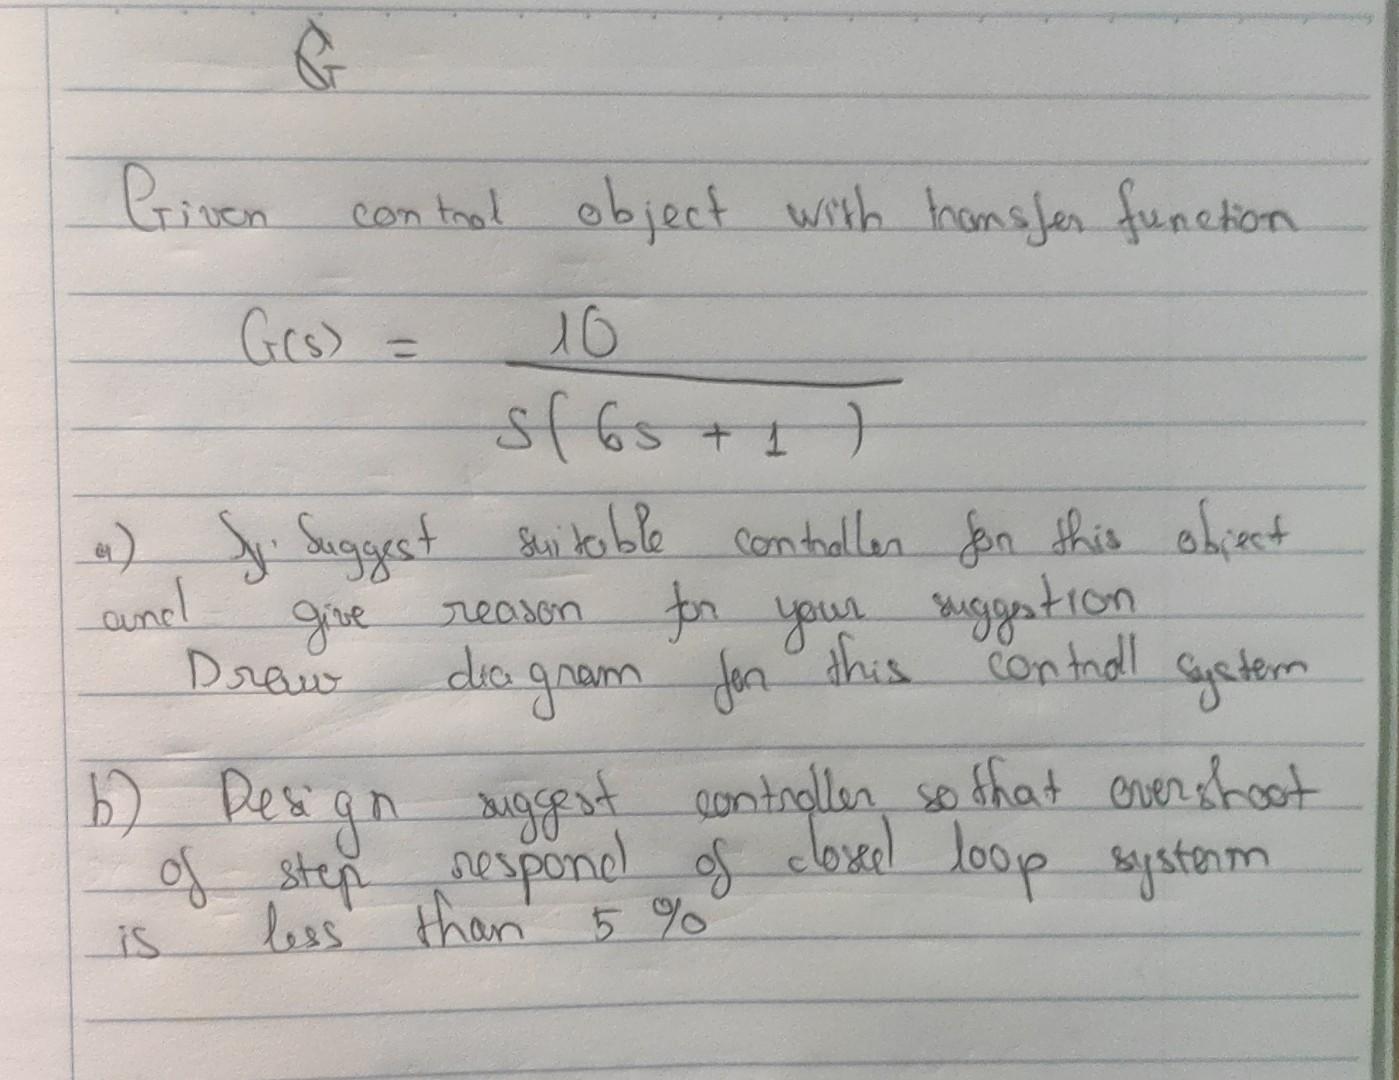 G
Given control object with transfer function
G(s) = 10
s( 6s + 1 )
a) Sy. Suggest suitable controller for this object
and give reason for your suggestion
Draw diagram for this controll system
b) Design suggest controller so that overshoot
of step respond of closed loop system
is less than 5 %